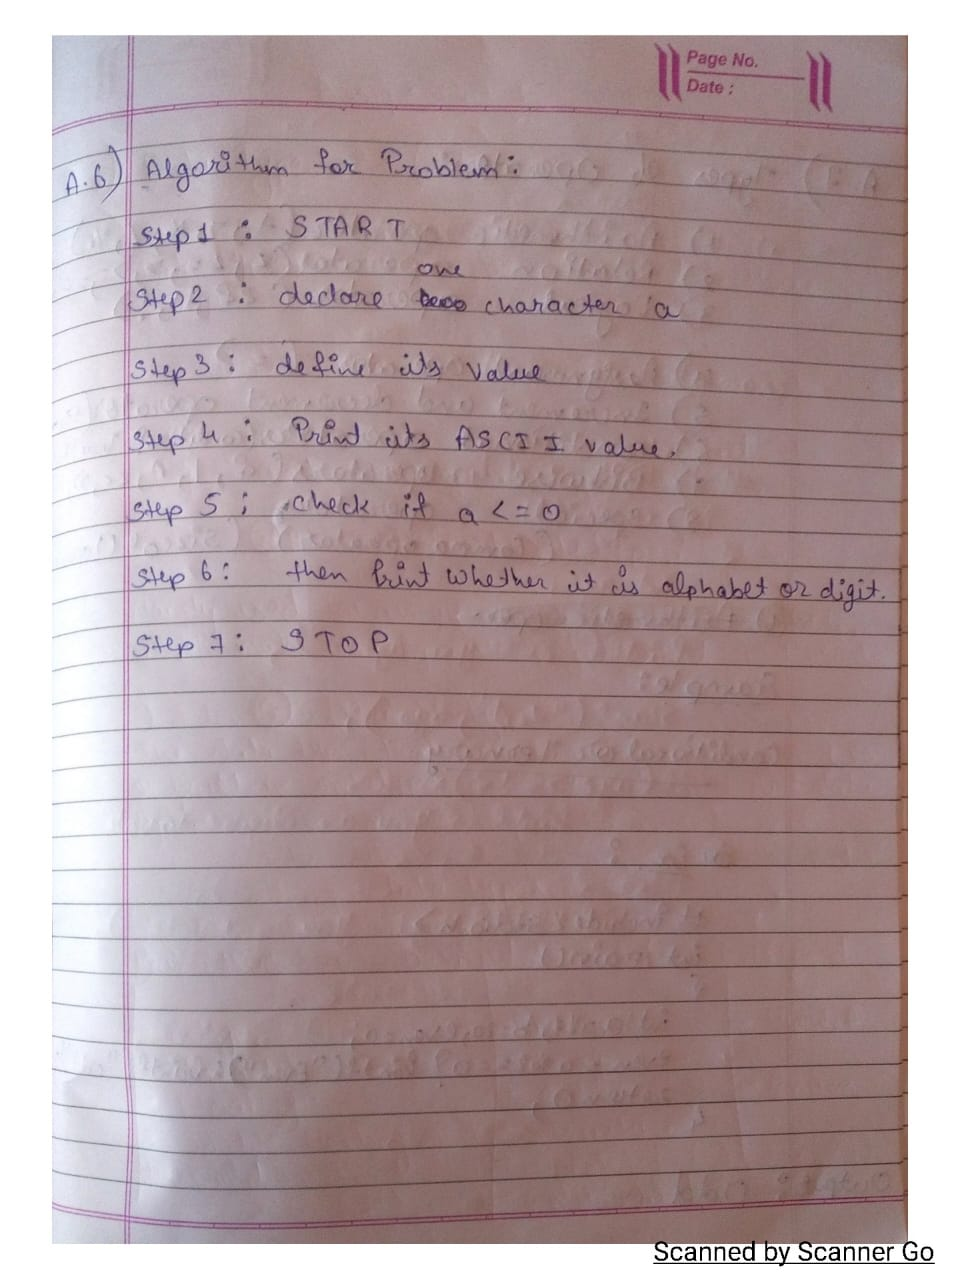 Page No.
Date :
A.6) Algorithm for Problem:
Step 1 : START
one
Step 2 : declare character a
Step 3 : define its value
Step 4 : Print its ASCII value.
Step 5 ; check if a <= 0
Step 6 : then print whether it is alphabet or digit.
Step 7 : STOP
Scanned by Scanner Go